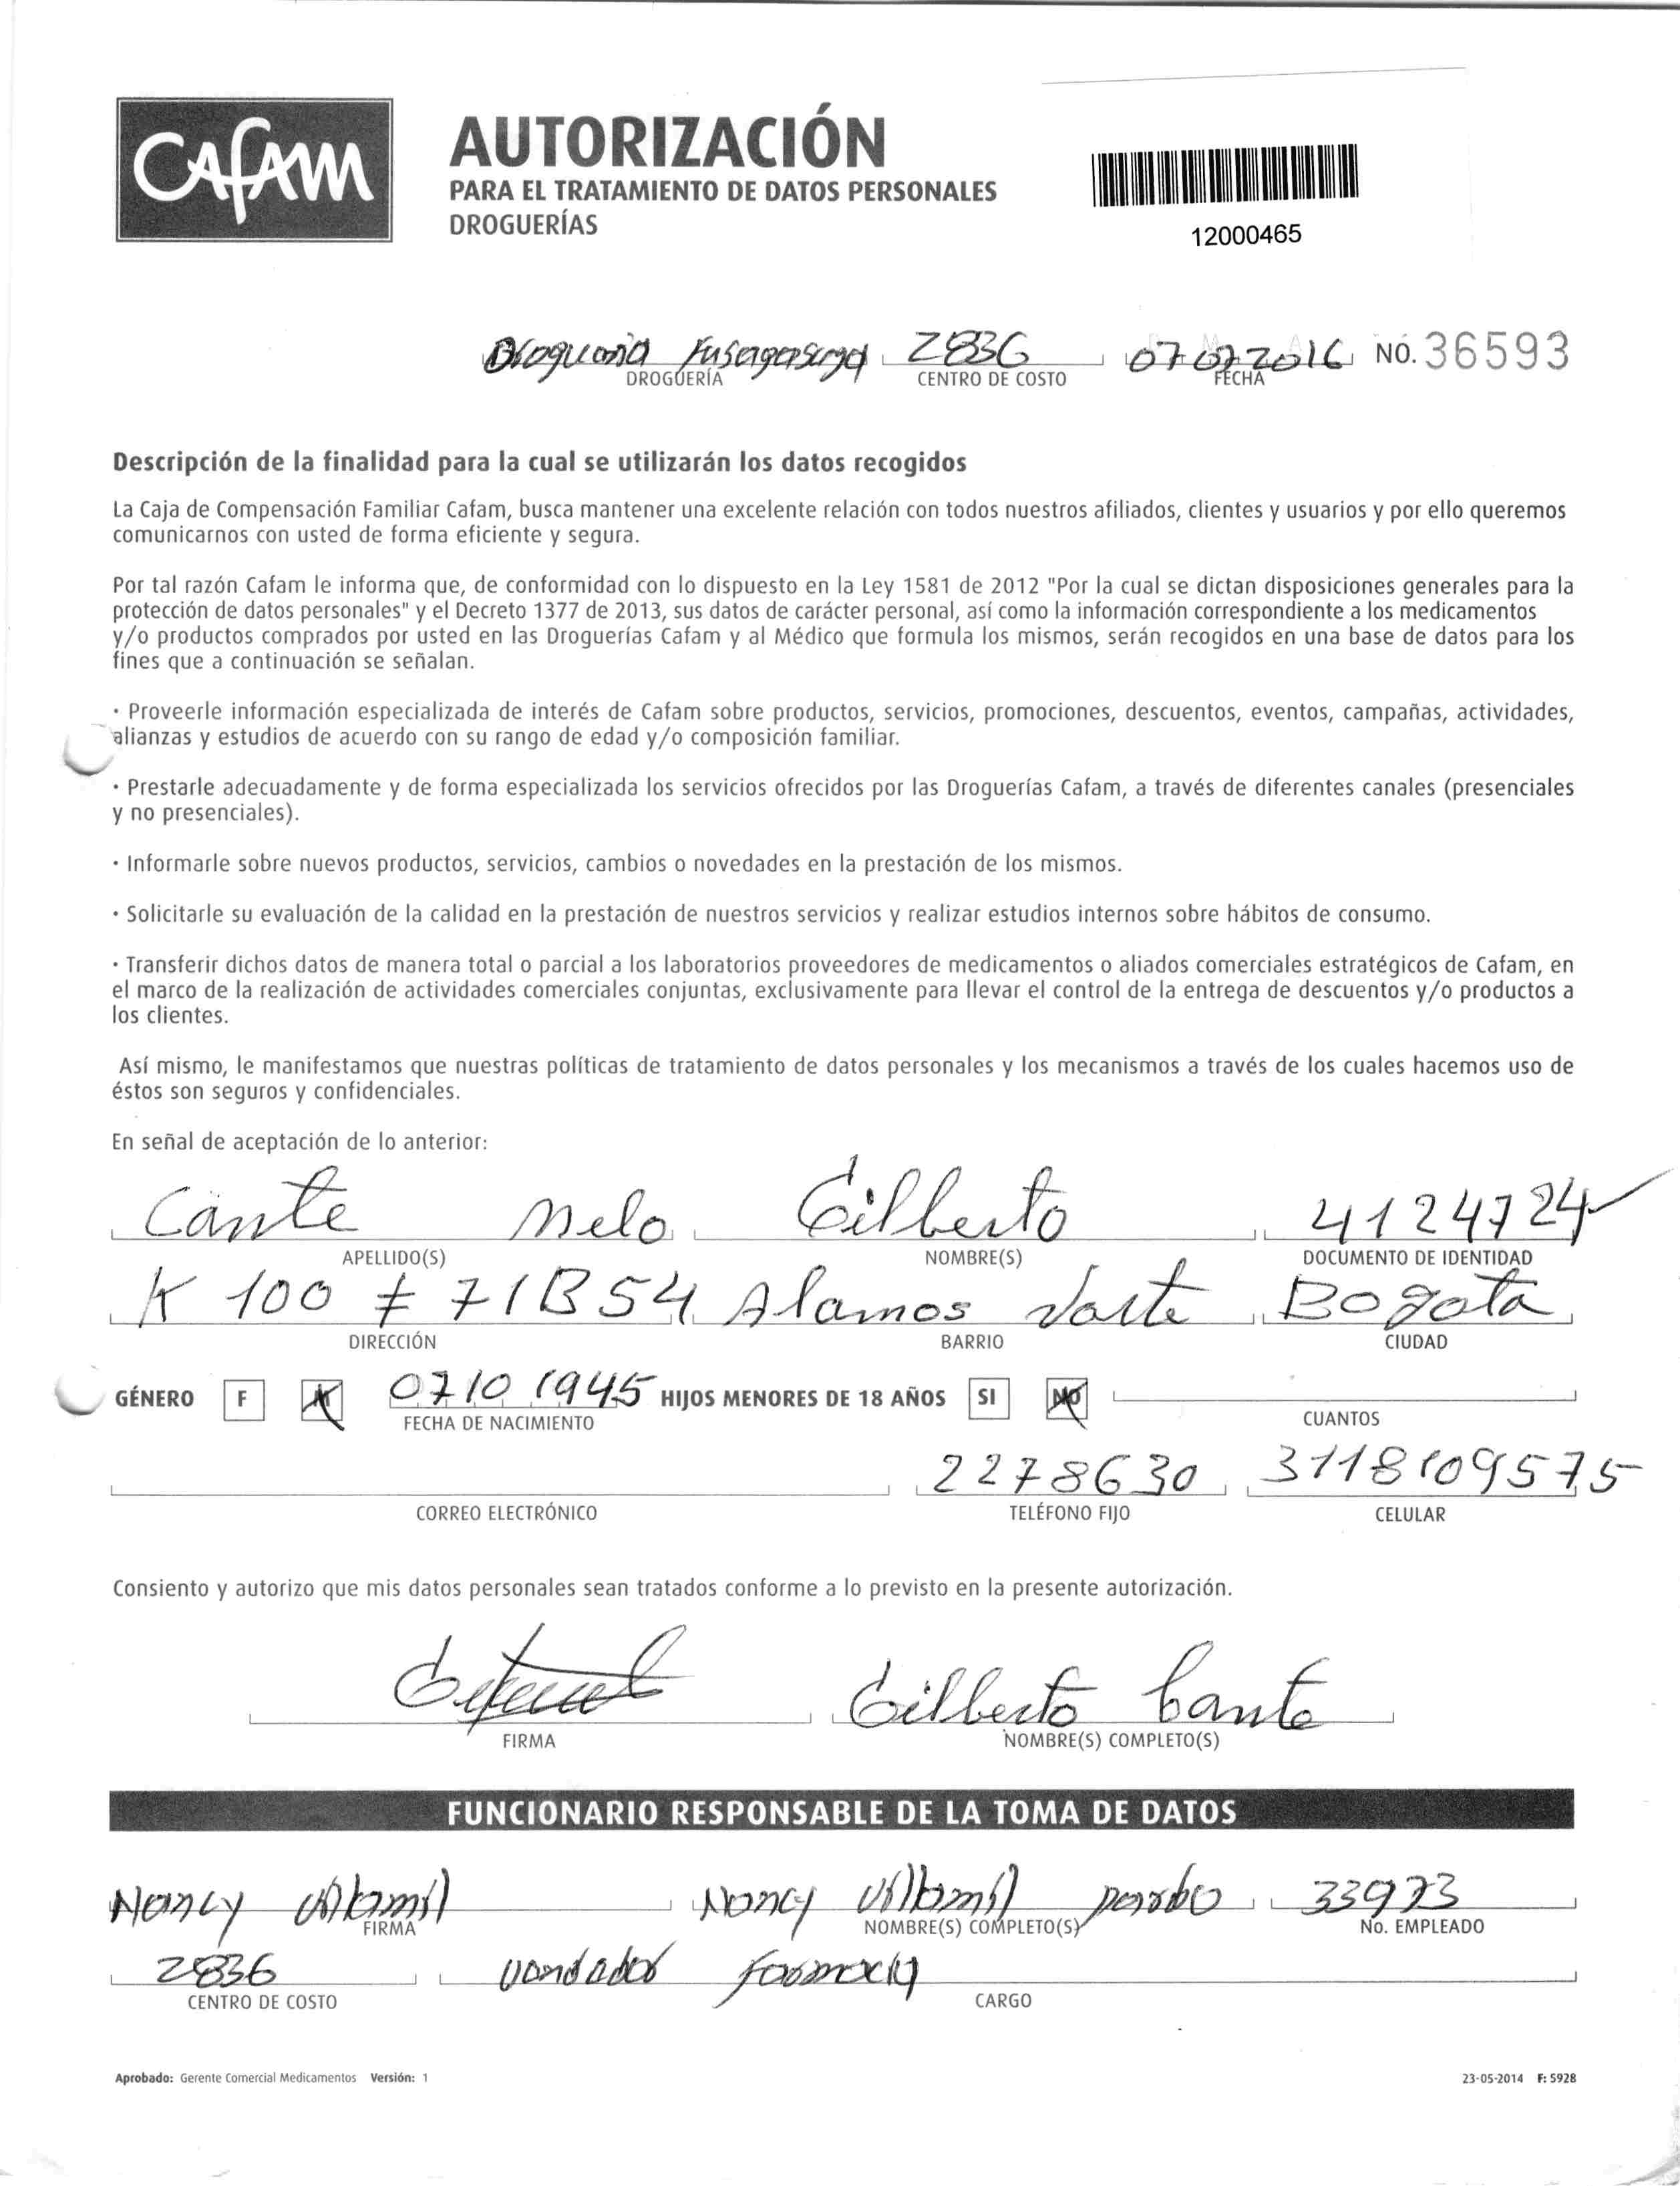 CAFAM
AUTORIZACIÓN
PARA EL TRATAMIENTO DE DATOS PERSONALES
DROGUERÍAS
12000465
Drogueria Fusagasuga 2836 07 07 2016 NO. 36593
DROGUERÍA CENTRO DE COSTO FECHA
Descripción de la finalidad para la cual se utilizarán los datos recogidos
La Caja de Compensación Familiar Cafam, busca mantener una excelente relación con todos nuestros afiliados, clientes y usuarios y por ello queremos
comunicarnos con usted de forma eficiente y segura.
Por tal razón Cafam le informa que, de conformidad con lo dispuesto en la Ley 1581 de 2012 "Por la cual se dictan disposiciones generales para la
protección de datos personales" y el Decreto 1377 de 2013, sus datos de carácter personal, así como la información correspondiente a los medicamentos
y/o productos comprados por usted en las Droguerías Cafam y al Médico que formula los mismos, serán recogidos en una base de datos para los
fines que a continuación se señalan.
· Proveerle información especializada de interés de Cafam sobre productos, servicios, promociones, descuentos, eventos, campañas, actividades,
alianzas y estudios de acuerdo con su rango de edad y/o composición familiar.
· Prestarle adecuadamente y de forma especializada los servicios ofrecidos por las Droguerías Cafam, a través de diferentes canales (presenciales
y no presenciales).
· Informarle sobre nuevos productos, servicios, cambios o novedades en la prestación de los mismos.
· Solicitarle su evaluación de la calidad en la prestación de nuestros servicios y realizar estudios internos sobre hábitos de consumo.
· Transferir dichos datos de manera total o parcial a los laboratorios proveedores de medicamentos o aliados comerciales estratégicos de Cafam, en
el marco de la realización de actividades comerciales conjuntas, exclusivamente para llevar el control de la entrega de descuentos y/o productos a
los clientes.
Así mismo, le manifestamos que nuestras políticas de tratamiento de datos personales y los mecanismos a través de los cuales hacemos uso de
éstos son seguros y confidenciales.
En señal de aceptación de lo anterior:
Cante Melo Gilberto 4124724
APELLIDO(S) NOMBRE(S) DOCUMENTO DE IDENTIDAD
K 100 # 71B54 Alamos Norte Bogota
DIRECCIÓN BARRIO CIUDAD
GÉNERO F M 07 10 1945 HIJOS MENORES DE 18 AÑOS SI NO
FECHA DE NACIMIENTO CUANTOS
2278630 3118109575
CORREO ELECTRÓNICO TELÉFONO FIJO CELULAR
Consiento y autorizo que mis datos personales sean tratados conforme a lo previsto en la presente autorización.
Gilberto Cante
FIRMA NOMBRE(S) COMPLETO(S)
FUNCIONARIO RESPONSABLE DE LA TOMA DE DATOS
Nancy Villamil Nancy Villamil pardo 33973
FIRMA NOMBRE(S) COMPLETO(S) No. EMPLEADO
2836 vendedor farmacia
CENTRO DE COSTO CARGO
Aprobado: Gerente Comercial Medicamentos Versión: 1 23-05-2014 F: 5928